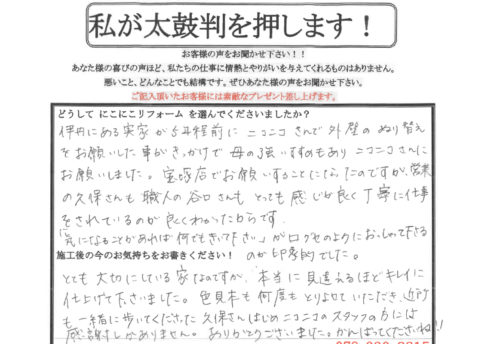 私が太鼓判を押します！
お客様の声をお聞かせ下さい！！
あなた様の喜びの声ほど、私たちの仕事に情熱とやりがいを与えてくれるものはありません。
悪いこと、どんなことでも結構です。ぜひあなた様の声をお聞かせ下さい。
ご記入頂いたお客様には素敵なプレゼント差し上げます。
どうして にこにこリフォーム を選んでくださいましたか？
伊丹にある実家が5年程前に ニコニコさんで外壁のぬり替え
をお願いした事がきっかけで 母の強いすすめもあり ニコニコさんに
お願いしました。宝塚店でお願いすることになったのですが、営業
の久保さんも 職人の谷口さんも とっても感じが良く丁寧に仕事
をされているのが良くわかったからです。
「気になることがあれば何でもきいて下さい」が口グセのようにおっしゃって下さる
のが印象的でした。
施工後の今のお気持ちをお書きください！
とても大切にしている家なのですが、本当に見違えるほどキレイに
仕上げて下さいました。色見本も何度もとりよせていただき、近所
も一緒に歩いてくださった久保さんはじめニコニコのスタッフの方には
感謝しかありません。ありがとうございました。がんばってくださいね!!